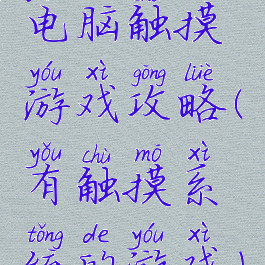 电脑触摸
yóu xì gōng lüè
游戏攻略(
yǒu chù mō xì
有触摸系
tǒng de yóu xì
统的游戏)